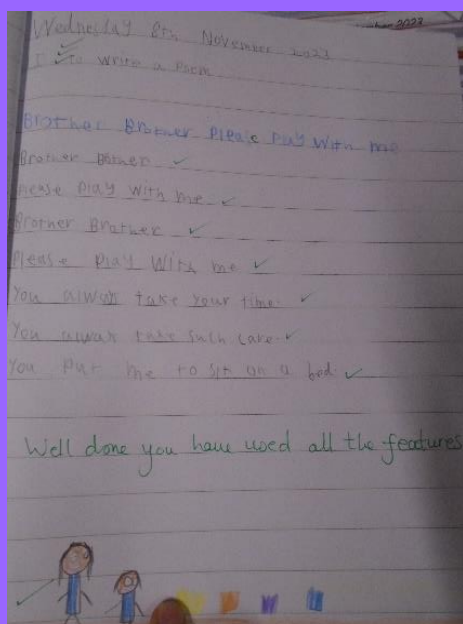 mber 2023
Wednesday 8th November 2023
I to write a Poem
Brother Brother Please Play With me
Brother Brother
Please Play With me
Brother Brother
Please Play With me
You always take Your time.
You always take such care.
You Put me to sit on a bed.
Well done you have used all the features